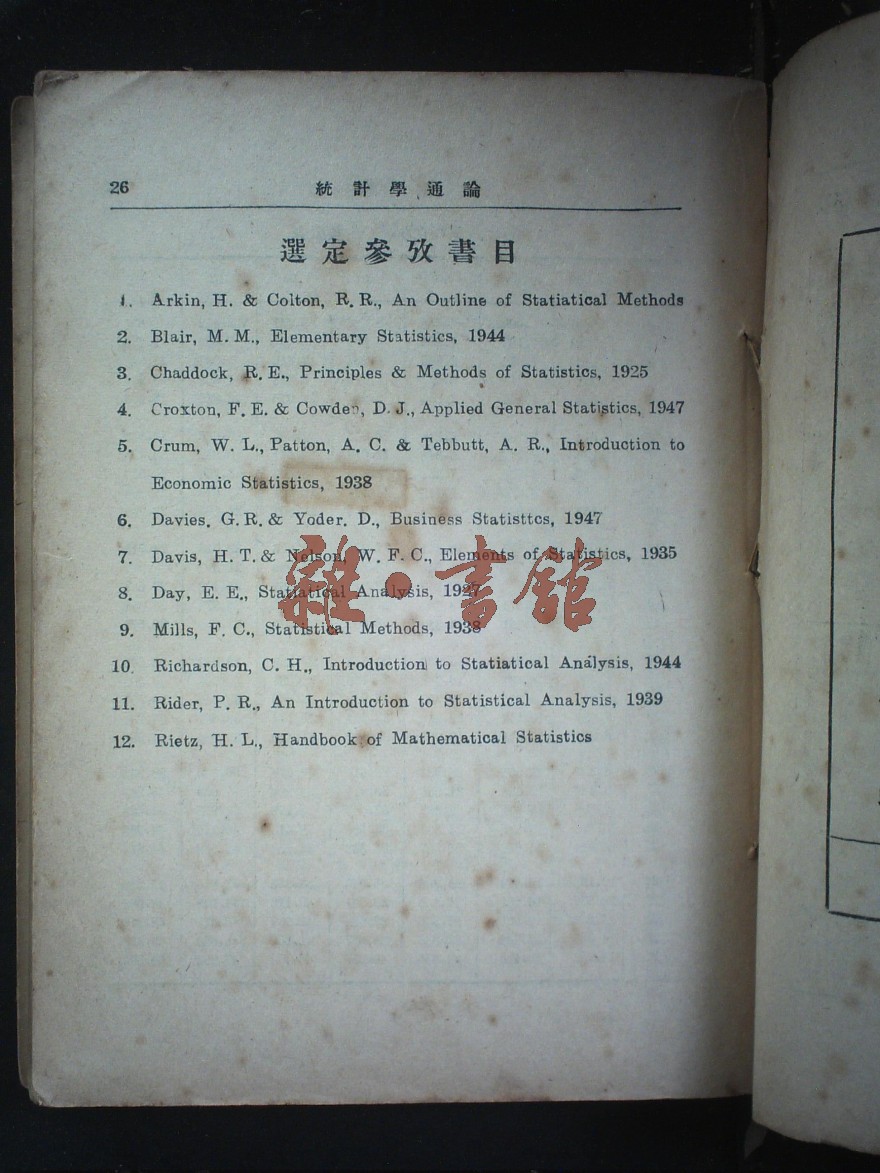 26 統計學通論
選定參攷書目
1. Arkin, H. & Colton, R. R., An Outline of Statiatical Methods
2. Blair, M. M., Elementary Statistics, 1944
3. Chaddock, R. E., Principles & Methods of Statistics, 1925
4. Croxton, F. E. & Cowden, D. J., Applied General Statistics, 1947
5. Crum, W. L., Patton, A. C. & Tebbutt, A. R., Introduction to
Economic Statistics, 1938
6. Davies. G. R. & Yoder. D., Business Statisttcs, 1947
7. Davis, H. T. & Nelson, W. F. C., Elements of Statistics, 1935
8. Day, E. E., Statiatical Analysis, 1927
9. Mills, F. C., Statistical Methods, 1938
10. Richardson, C. H., Introduction to Statiatical Analysis, 1944
11. Rider, P. R., An Introduction to Statistical Analysis, 1939
12. Rietz, H. L., Handbook of Mathematical Statistics
雜·書館